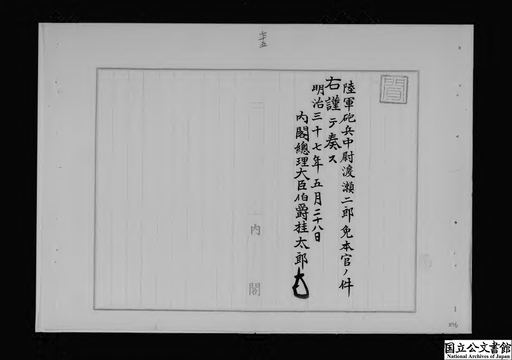 七十五
聞
陸軍砲兵中尉渡瀬二郎免本官ノ件
右謹テ奏ス
明治三十七年五月二十八日
内閣總理大臣伯爵桂太郎
内閣
国立公文書館
National Archives of Japan